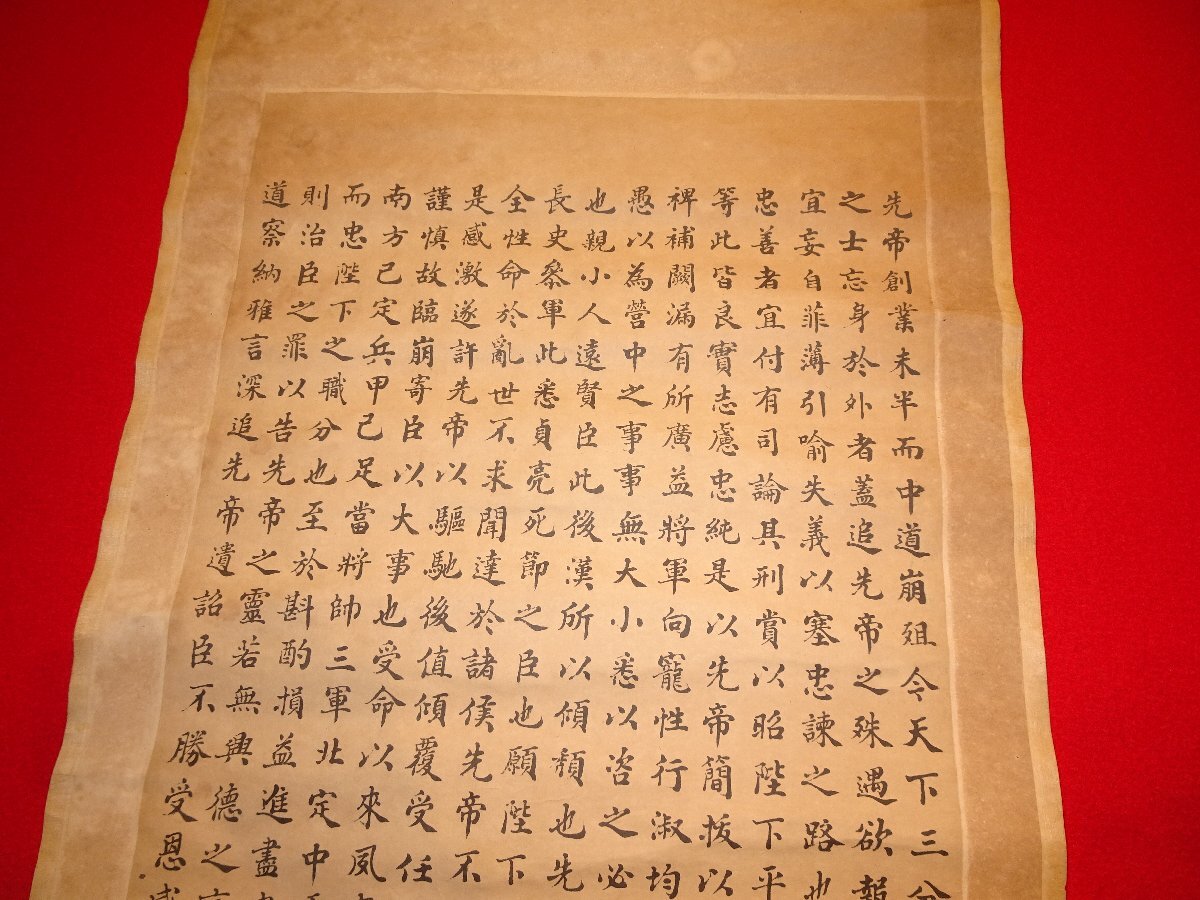 先帝創業未半而中道崩殂今天下三分
之士忘身於外者蓋追先帝之殊遇欲報
宜妄自菲薄引喻失義以塞忠諫之路也
忠善者宜付有司論其刑賞以昭陛下平
等此皆良實志慮忠純是以先帝簡拔以
裨補闕漏有所廣益將軍向寵性行淑均
愚以為營中之事事無大小悉以咨之必
也親小人遠賢臣此後漢所以傾頹也先
長史參軍此悉貞亮死節之臣也願陛下
全性命於亂世不求聞達於諸侯先帝不
是感激遂許先帝以驅馳後值傾覆受任
謹慎故臨崩寄臣以大事也受命以來夙
南方已定兵甲已足當將帥三軍北定中
而忠陛下之職分也至於斟酌損益進盡
則治臣之罪以告先帝之靈若無興德之
道察納雅言深追先帝遺詔臣不勝受恩感